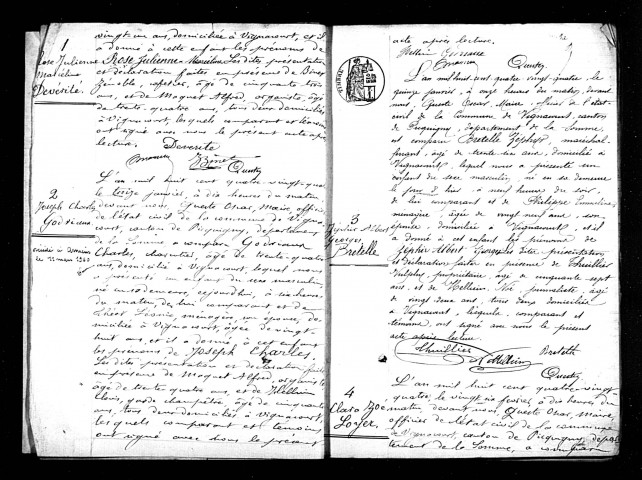 vingt un ans, domiciliée à Vignacourt, et il
a donné à cette enfant les prénoms de
1
Rose Julienne
Marceline
Deverité.
Rose Julienne Marceline Lesdites présentation
et déclaration faites en présence de Bonet
Zénoble, épicier, âgé de cinquante trois
ans, et de Moquet Alfred, organiste, âgé
de trente quatre ans, tous deux domiciliés
à Vignacourt, lesquels comparant et témoins
ont signé avec nous le présent acte après
lecture.
Deverité
Bonet
Questy
2
Joseph Charles
Godreaux
L'an mil huit cent quatre-vingt-quatre
le treize janvier, à dix heures du matin
devant nous, Questy Oscar, Maire, officier
de l'état civil de la commune de Vigna-
court, canton de Picquigny, département
de la Somme, a comparu Godreaux
Charles, âgé de trente-quatre
ans, domicilié à Vignacourt, lequel nous
a présenté un enfant du sexe masculin,
né en sa demeure, aujourd'hui, à six heures
du matin, de lui comparant et de
ménagère, son épouse, do-
miciliée à Vignacourt, âgée de vingt-
huit ans, et il a donné à cet enfant
les prénoms de Joseph Charles.
Lesdites présentation et déclaration faites
en présence de Moquet Alfred, organiste
âgé de trente quatre ans et de Helluin
Clovis, garde champêtre, âgé de cinquante
ans, tous deux domiciliés à Vignacourt,
lesquels comparant et témoins
ont signé avec nous le présent
acte après lecture.
Helluin
Questy
3
Zéphir Albert
Georges
Bretelle
L'an mil huit cent quatre vingt quatre, le
quinze janvier, à onze heures du matin, devant
nous, Questy Oscar, Maire, officier de l'état-
civil de la Commune de Vignacourt, canton
de Picquigny, département de la Somme,
est comparu Bretelle Zéphir, maréchal-
ferrant, âgé de trente un ans, domicilié à
Vignacourt, lequel nous a présenté un
enfant du sexe masculin, né en sa demeure
à neuf heures du soir,
de lui comparant et de Philippe
ménagère, âgée de vingt neuf ans, son
épouse, domiciliée à Vignacourt, et il
a donné à cet enfant les prénoms de
Zéphir Albert Georges. Les dites présentation
et déclaration faites en présence de Thuillier
propriétaire, âgé de cinquante sept
ans, et de Helluin, Noé, journaliste, âgé
de vingt deux ans, tous deux domiciliés
à Vignacourt, lesquels comparant et
témoins, ont signé avec nous le présent
acte après lecture.
Thuillier
N. Helluin
Bretelle
Questy
4
Clara Zoé
Loyer.
L'an mil huit cent quatre-vingt-
quatre, le vingt six février, à dix heures du
matin devant nous, Questy Oscar, Maire,
officier de l'état civil de la commune
de Vignacourt, canton de Picquigny, dépar-
tement de la Somme, a comparu